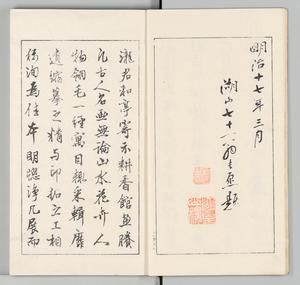 明治十七年三月
湖山七十一翁愿題
瀧君和亭寄示耕香館画賸
凡古人名画無論山水花卉人
物翎毛一経寓目輙采輯靡
遺縮摹之精与印刻之工相
待洵為佳本明窓浄几展而